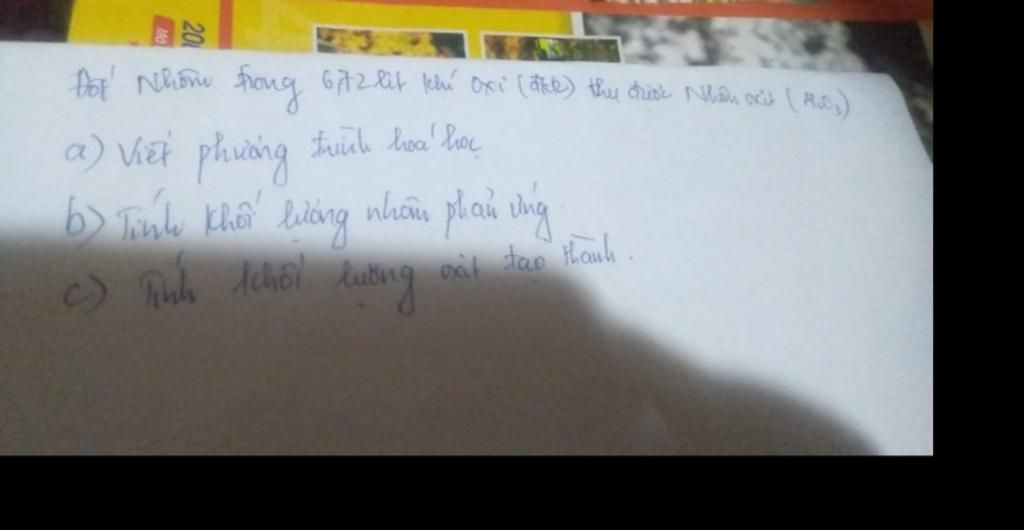 200
Mo
Đốt Nhôm trong 6,72 lit khí oxi (đktc) thu được Nhôm oxit (Al2O3)
a) Viết phương trình hoá học
b) Tính khối lượng nhôm phản ứng
c) Tính khối lượng oxit tạo thành.